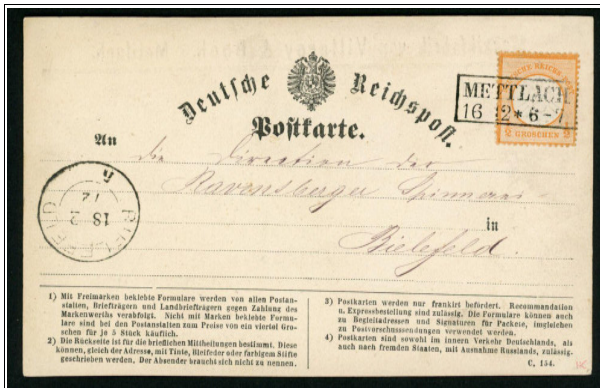 Deutsche Reichspost.
Postkarte.
METTLACH
16 12 * 6-7.
2 GROSCHEN 2
An
die Direction der
Ravensberger Spinnerei
in
Bielefeld.
BIELEFELD
18 2
72
1) Mit Freimarken beklebte Formulare werden von allen Postan-
stalten, Briefträgern und Landbriefträgern gegen Zahlung des
Markenwerths verabfolgt. Nicht mit Marken beklebte Formu-
lare sind bei den Postanstalten zum Preise von ein viertel Gro-
schen für je 5 Stück käuflich.
2) Die Rückseite ist für die brieflichen Mittheilungen bestimmt. Diese
können, gleich der Adresse, mit Tinte, Bleifeder oder farbigem Stifte
geschrieben werden. Der Absender braucht sich nicht zu nennen.
3) Postkarten werden nur frankirt befördert. Recommandation
u. Expressbestellung sind zulässig. Die Formulare können auch
zu Begleitadressen und Signaturen für Packete, imgleichen
zu Postvorschussendungen verwendet werden.
4) Postkarten sind sowohl im innern Verkehr Deutschlands, als
auch nach fremden Staaten, mit Ausnahme Russlands, zulässig.
C. 154.